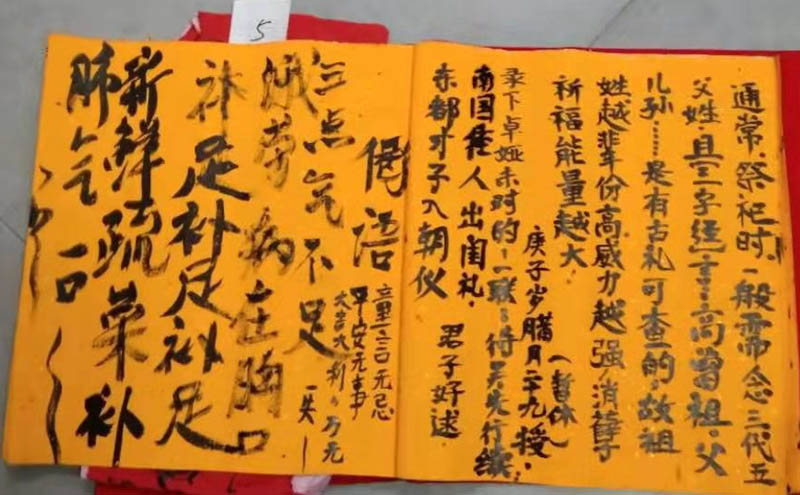 5
通常.祭祀时.一般需念三代五
父姓.且三字经言:高曾祖.父
儿孙……是有古礼可查的,故祖
姓越辈份高威力越强,消孽子
祈福能量越大.
(暂休)
庚子岁腊月二十九授.
录下卓娅未时的一联:待吴先行续
南国佳人出闺礼.
东都才子入朝仪
君子好逑
偈语
无忌
平安无事
大吉大利 万元
三点气不足
饿劳病在胸口
补足补足补足
新鲜蔬菜补
肺气